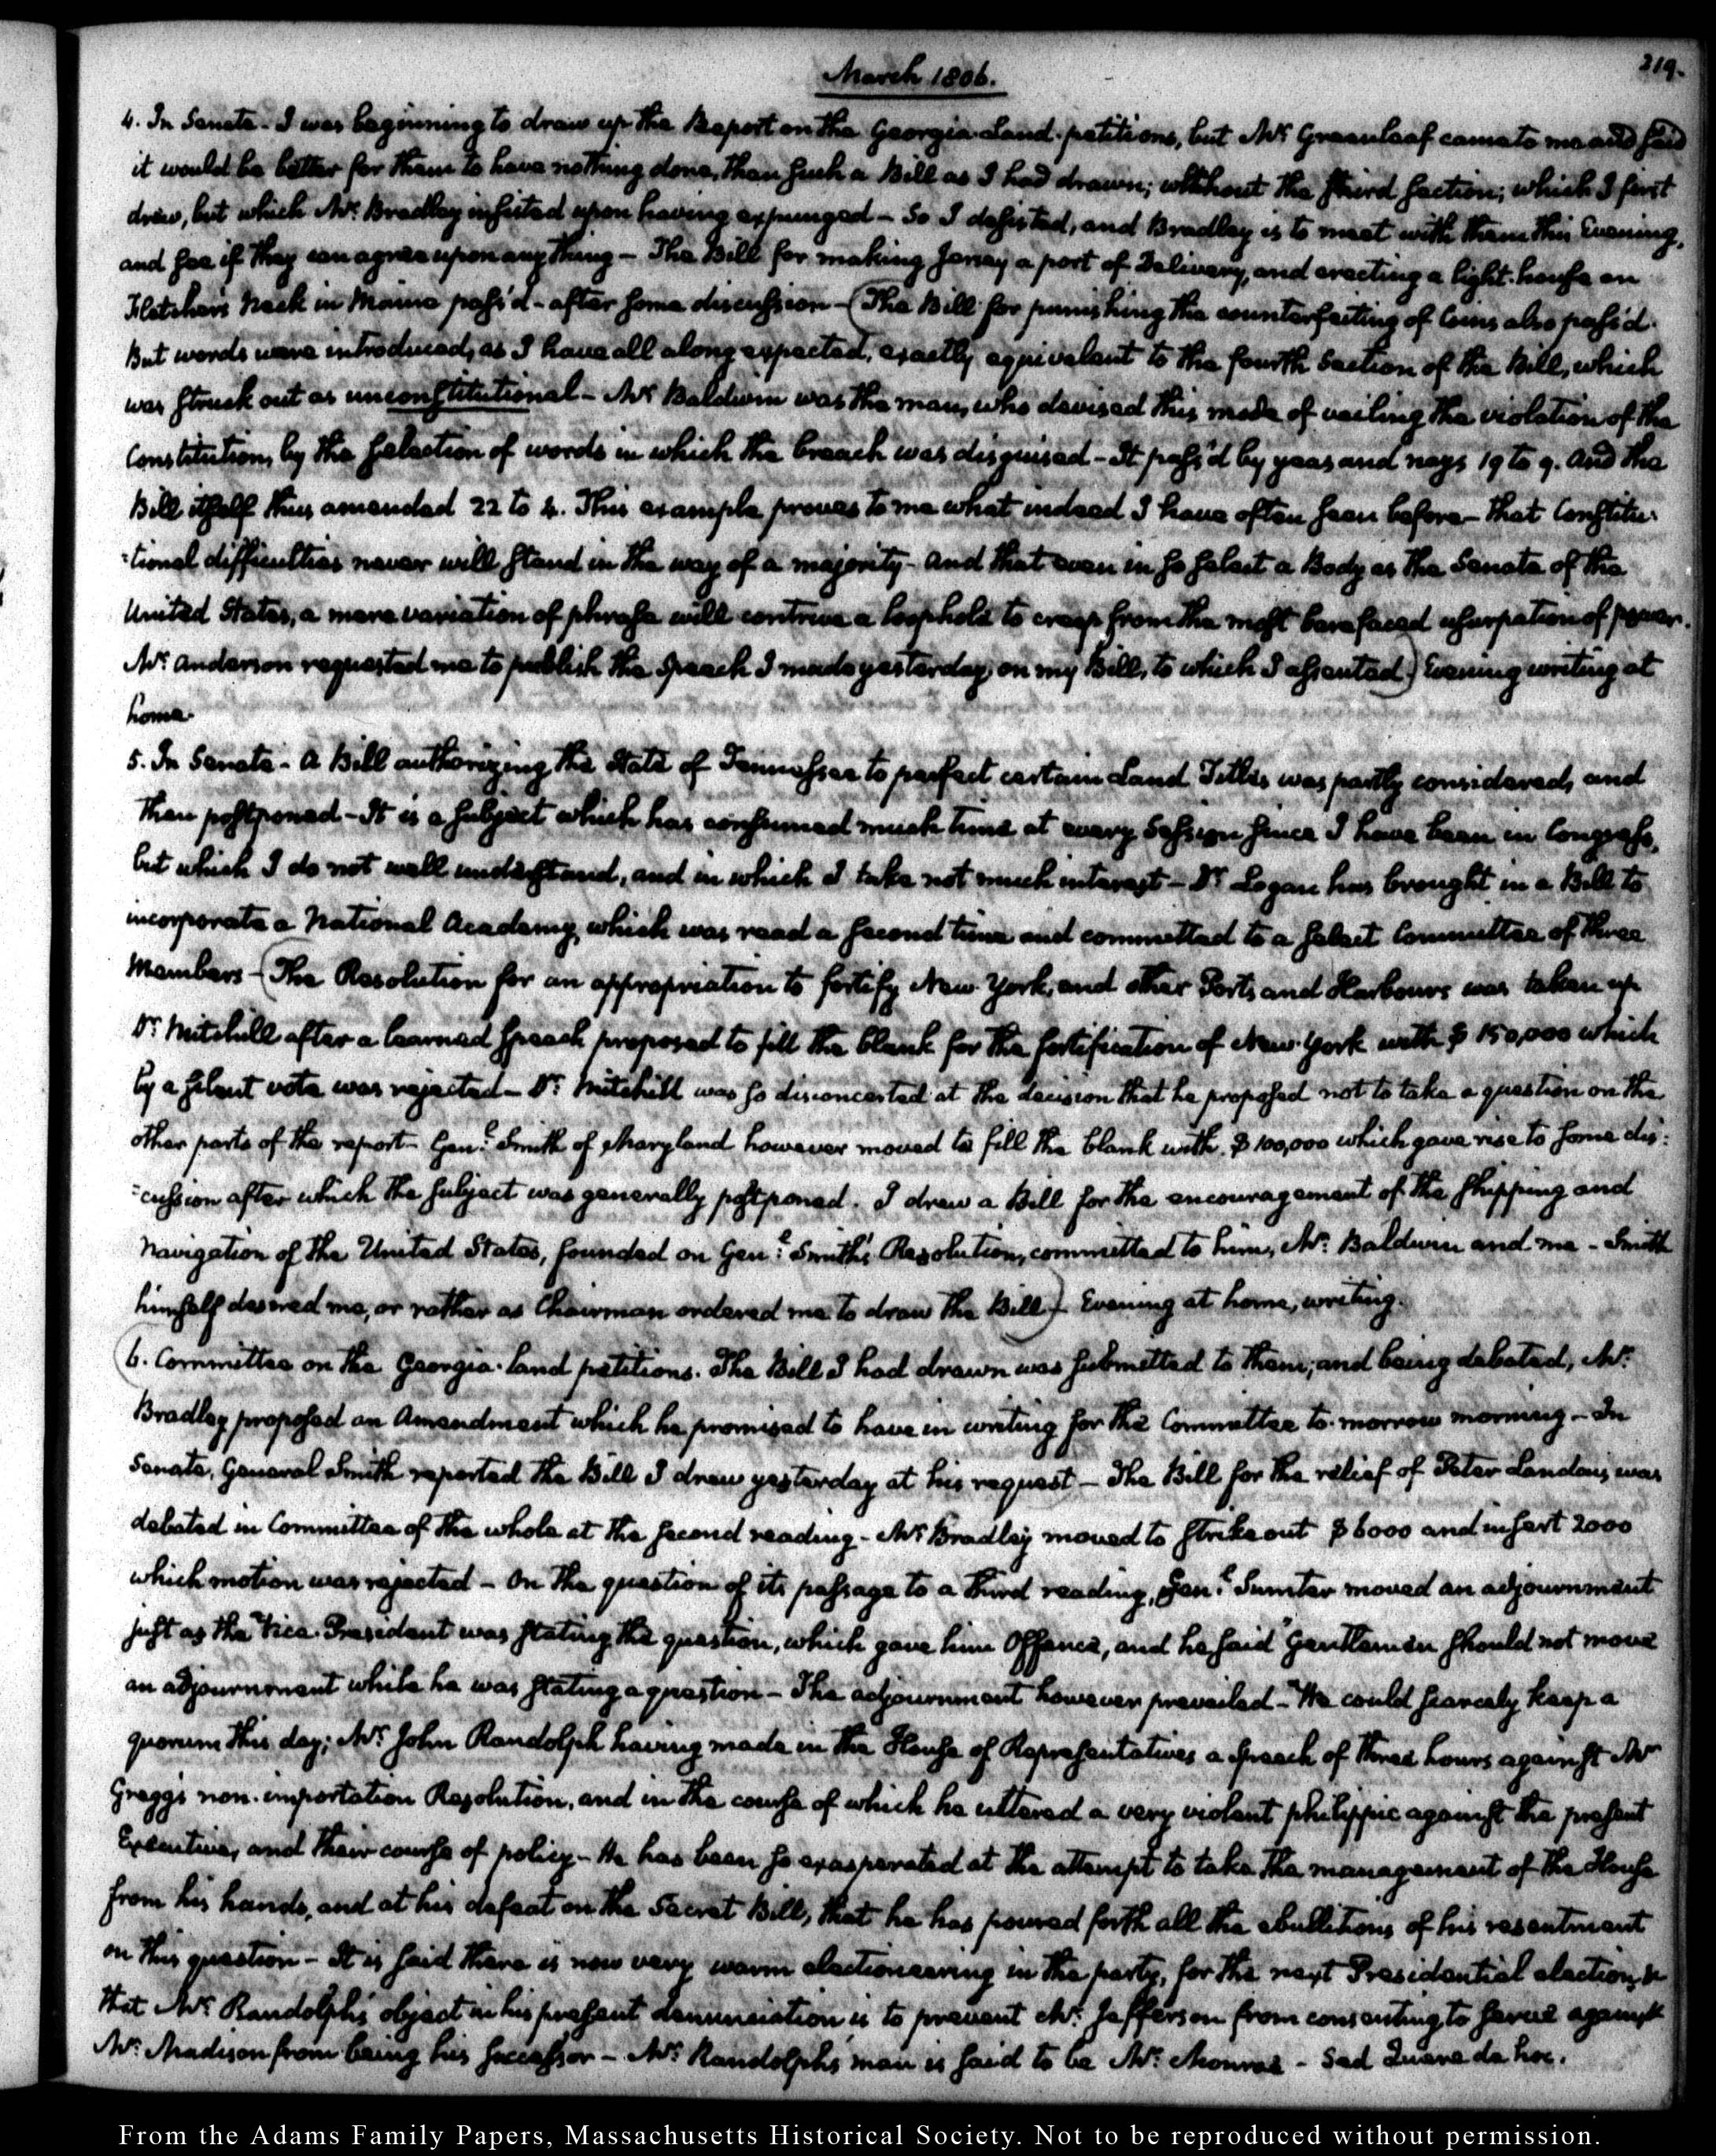 March 1806.
219.
4. In Senate - I was beginning to draw up the Report on the Georgia Land petitions, but Mr. Greenleaf came to me and said
it would be better for them to have nothing done, than such a Bill as I had drawn; without the third section; which I first
drew, but which Mr. Bradley insisted upon having expunged - So I desisted, and Bradley is to meet with them this Evening,
and see if they can agree upon any thing - The Bill for making Jersey a port of Delivery, and erecting a light-house on
Fletcher's Neck in Maine pass'd - after some discussion - (The Bill for punishing the counterfeiting of Coins also pass'd.
But words were introduced, as I have all along expected, exactly equivalent to the fourth Section of the Bill, which
was struck out as unconstitutional - Mr. Baldwin was the man, who devised this mode of veiling the violation of the
Constitution, by the selection of words in which the breach was disguised - It pass'd by yeas and nays 19 to 9. And the
Bill itself thus amended 22 to 4. This example proves to me what indeed I have often seen before - that Constitu-
-tional difficulties never will stand in the way of a majority - and that even in so select a Body as the Senate of the
United States, a mere variation of phrase will contrive a loophole to creep from the most barefaced usurpation of power.
Mr. Anderson requested me to publish the speech I made yesterday, on my Bill, to which I assented) Evening writing at
home.
5. In Senate - A Bill authorizing the State of Tennessee to perfect certain Land Titles was partly considered, and
then postponed - It is a subject which has consumed much time at every Session since I have been in Congress,
but which I do not well understand, and in which I take not much interest - Dr. Logan has brought in a Bill to
incorporate a National Academy, which was read a second time and committed to a select Committee of three
Members - (The Resolution for an appropriation to fortify New York, and other Ports and Harbours was taken up
Dr. Mitchill after a learned speech proposed to fill the blank for the fortification of New-York with $150,000 which
by a silent vote was rejected - Dr. Mitchill was so disconcerted at the decision that he proposed not to take a question on the
other parts of the report - Genl. Smith of Maryland however moved to fill the blank with $100,000 which gave rise to some dis-
-cussion after which the subject was generally postponed. I drew a Bill for the encouragement of the shipping and
Navigation of the United States, founded on Genl. Smith's Resolution, committed to him, Mr. Baldwin and me - Smith
himself desired me, or rather as Chairman ordered me to draw the Bill) - Evening at home, writing.
(6. Committee on the Georgia-land petitions. The Bill I had drawn was submitted to them; and being debated, Mr.
Bradley proposed an Amendment which he promised to have in writing for the Committee to-morrow morning - In
Senate, General Smith reported the Bill I drew yesterday at his request - The Bill for the relief of Peter Landais, was
debated in Committee of the whole at the second reading - Mr. Bradley moved to strike out $6000 and insert 2000
which motion was rejected - On the question of its passage to a third reading, Genl. Sumter moved an adjournment
just as the Vice-President was stating the question, which gave him Offence, and he said "Gentlemen should not move
an adjournment while he was stating a question - The adjournment however prevailed - "We could scarcely keep a
quorum this day; Mr. John Randolph having made in the House of Representatives a speech of three hours against Mr.
Gregg's non-importation Resolution, and in the course of which he uttered a very violent philippic against the present
Executive, and their course of policy - He has been so exasperated at the attempt to take the management of the House
from his hands, and at his defeat on the Secret Bill, that he has poured forth all the ebullitions of his resentment
on this question - It is said there is now very warm electioneering in the party, for the next Presidential election, &
that Mr. Randolph's object in his present denunciation is to prevent Mr. Jefferson from consenting to serve again &
Mr. Madison from being his successor - Mr. Randolph's man is said to be Mr. Monroe - Sed Quære de hoc.
From the Adams Family Papers, Massachusetts Historical Society. Not to be reproduced without permission.